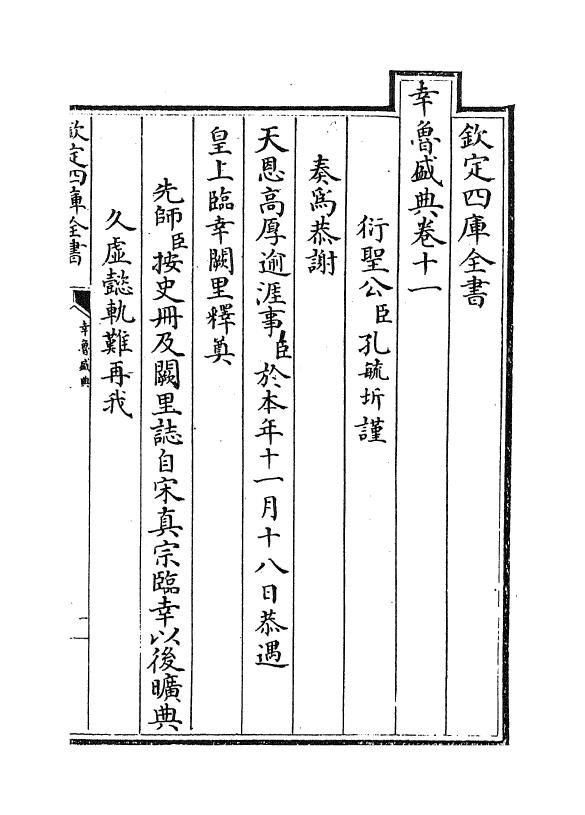 欽定四庫全書
幸魯盛典卷十一
衍聖公臣孔毓圻謹
奏爲恭謝
天恩高厚逾涯事臣於本年十一月十八日恭遇
皇上臨幸闕里釋奠
先師臣按史冊及闕里誌自宋真宗臨幸以後曠典
久虛懿軌難再我
欽定四庫全書
幸魯盛典